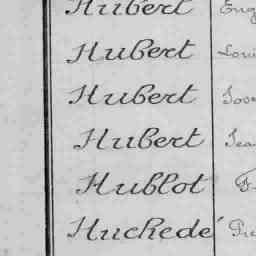 Hubert Eug
Hubert Loui
Hubert Jose
Hubert Jea
Hublot
Huchedé